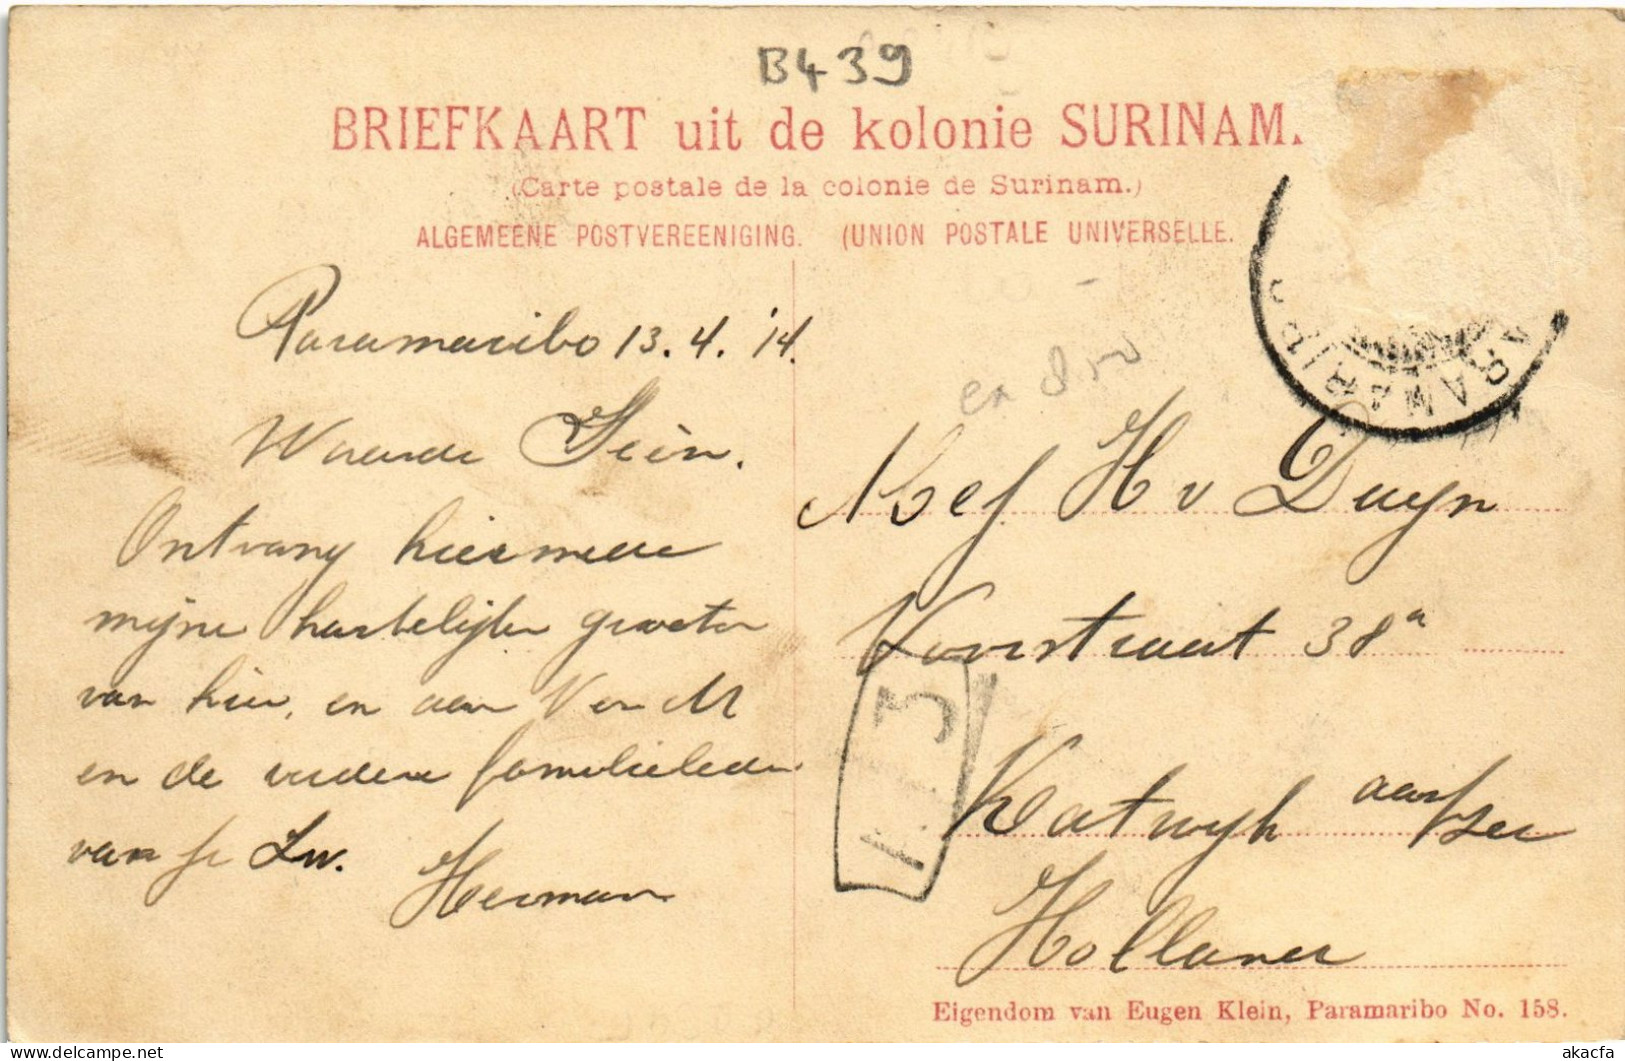 B439
BRIEFKAART uit de kolonie SURINAM.
(Carte postale de la colonie de Surinam.)
ALGEMEENE POSTVEREENIGING. (UNION POSTALE UNIVERSELLE.
PARAMARIBO
Paramaribo 13.4.'14.
Waarde
Ontvang hiermede
mijne hartelijke groeten
van hier, en aan V en M
en de verdere familieleden
van je Lw.
Herman
H v Duyn
Voorstraat 38a
Katwijk aan Zee
Holland
Eigendom van Eugen Klein, Paramaribo No. 158.
akacfa